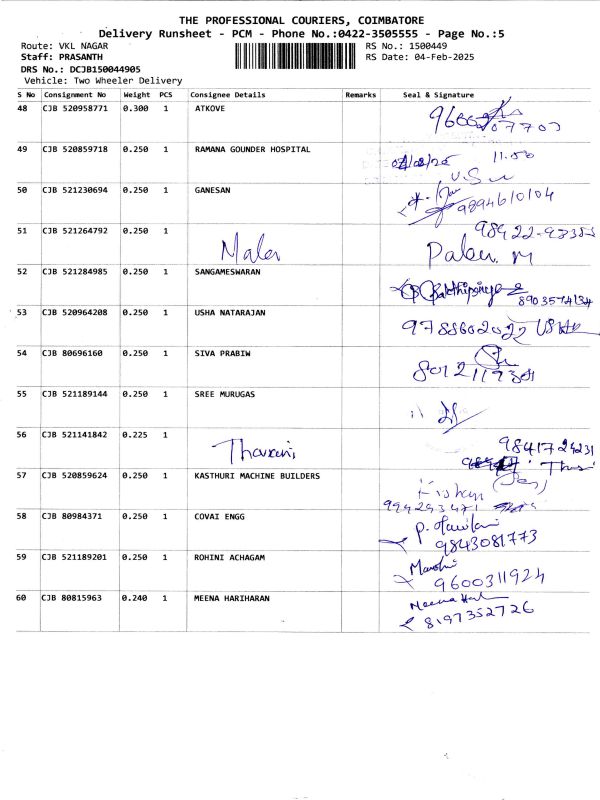 THE PROFESSIONAL COURIERS, COIMBATORE
Delivery Runsheet - PCM - Phone No.:0422-3505555 - Page No.:5
Route: VKL NAGAR RS No.: 1500449
Staff: PRASANTH RS Date: 04-Feb-2025
DRS No.: DCJB150044905
Vehicle: Two Wheeler Delivery
S No Consignment No Weight PCS Consignee Details Remarks Seal & Signature
48 CJB 520958771 0.300 1 ATKOVE
49 CJB 520859718 0.250 1 RAMANA GOUNDER HOSPITAL 11.50
50 CJB 521230694 0.250 1 GANESAN 9894610104
51 CJB 521264792 0.250 1
52 CJB 521284985 0.250 1 SANGAMESWARAN 8903574134
53 CJB 520964208 0.250 1 USHA NATARAJAN 9788602022 USHA
54 CJB 80696160 0.250 1 SIVA PRABIW
55 CJB 521189144 0.250 1 SREE MURUGAS
56 CJB 521141842 0.225 1 Tharani 9841724231
57 CJB 520859624 0.250 1 KASTHURI MACHINE BUILDERS Kishan
58 CJB 80984371 0.250 1 COVAI ENGG 9843081773
59 CJB 521189201 0.250 1 ROHINI ACHAGAM 9600311924
60 CJB 80815963 0.240 1 MEENA HARIHARAN Meena
8197352726